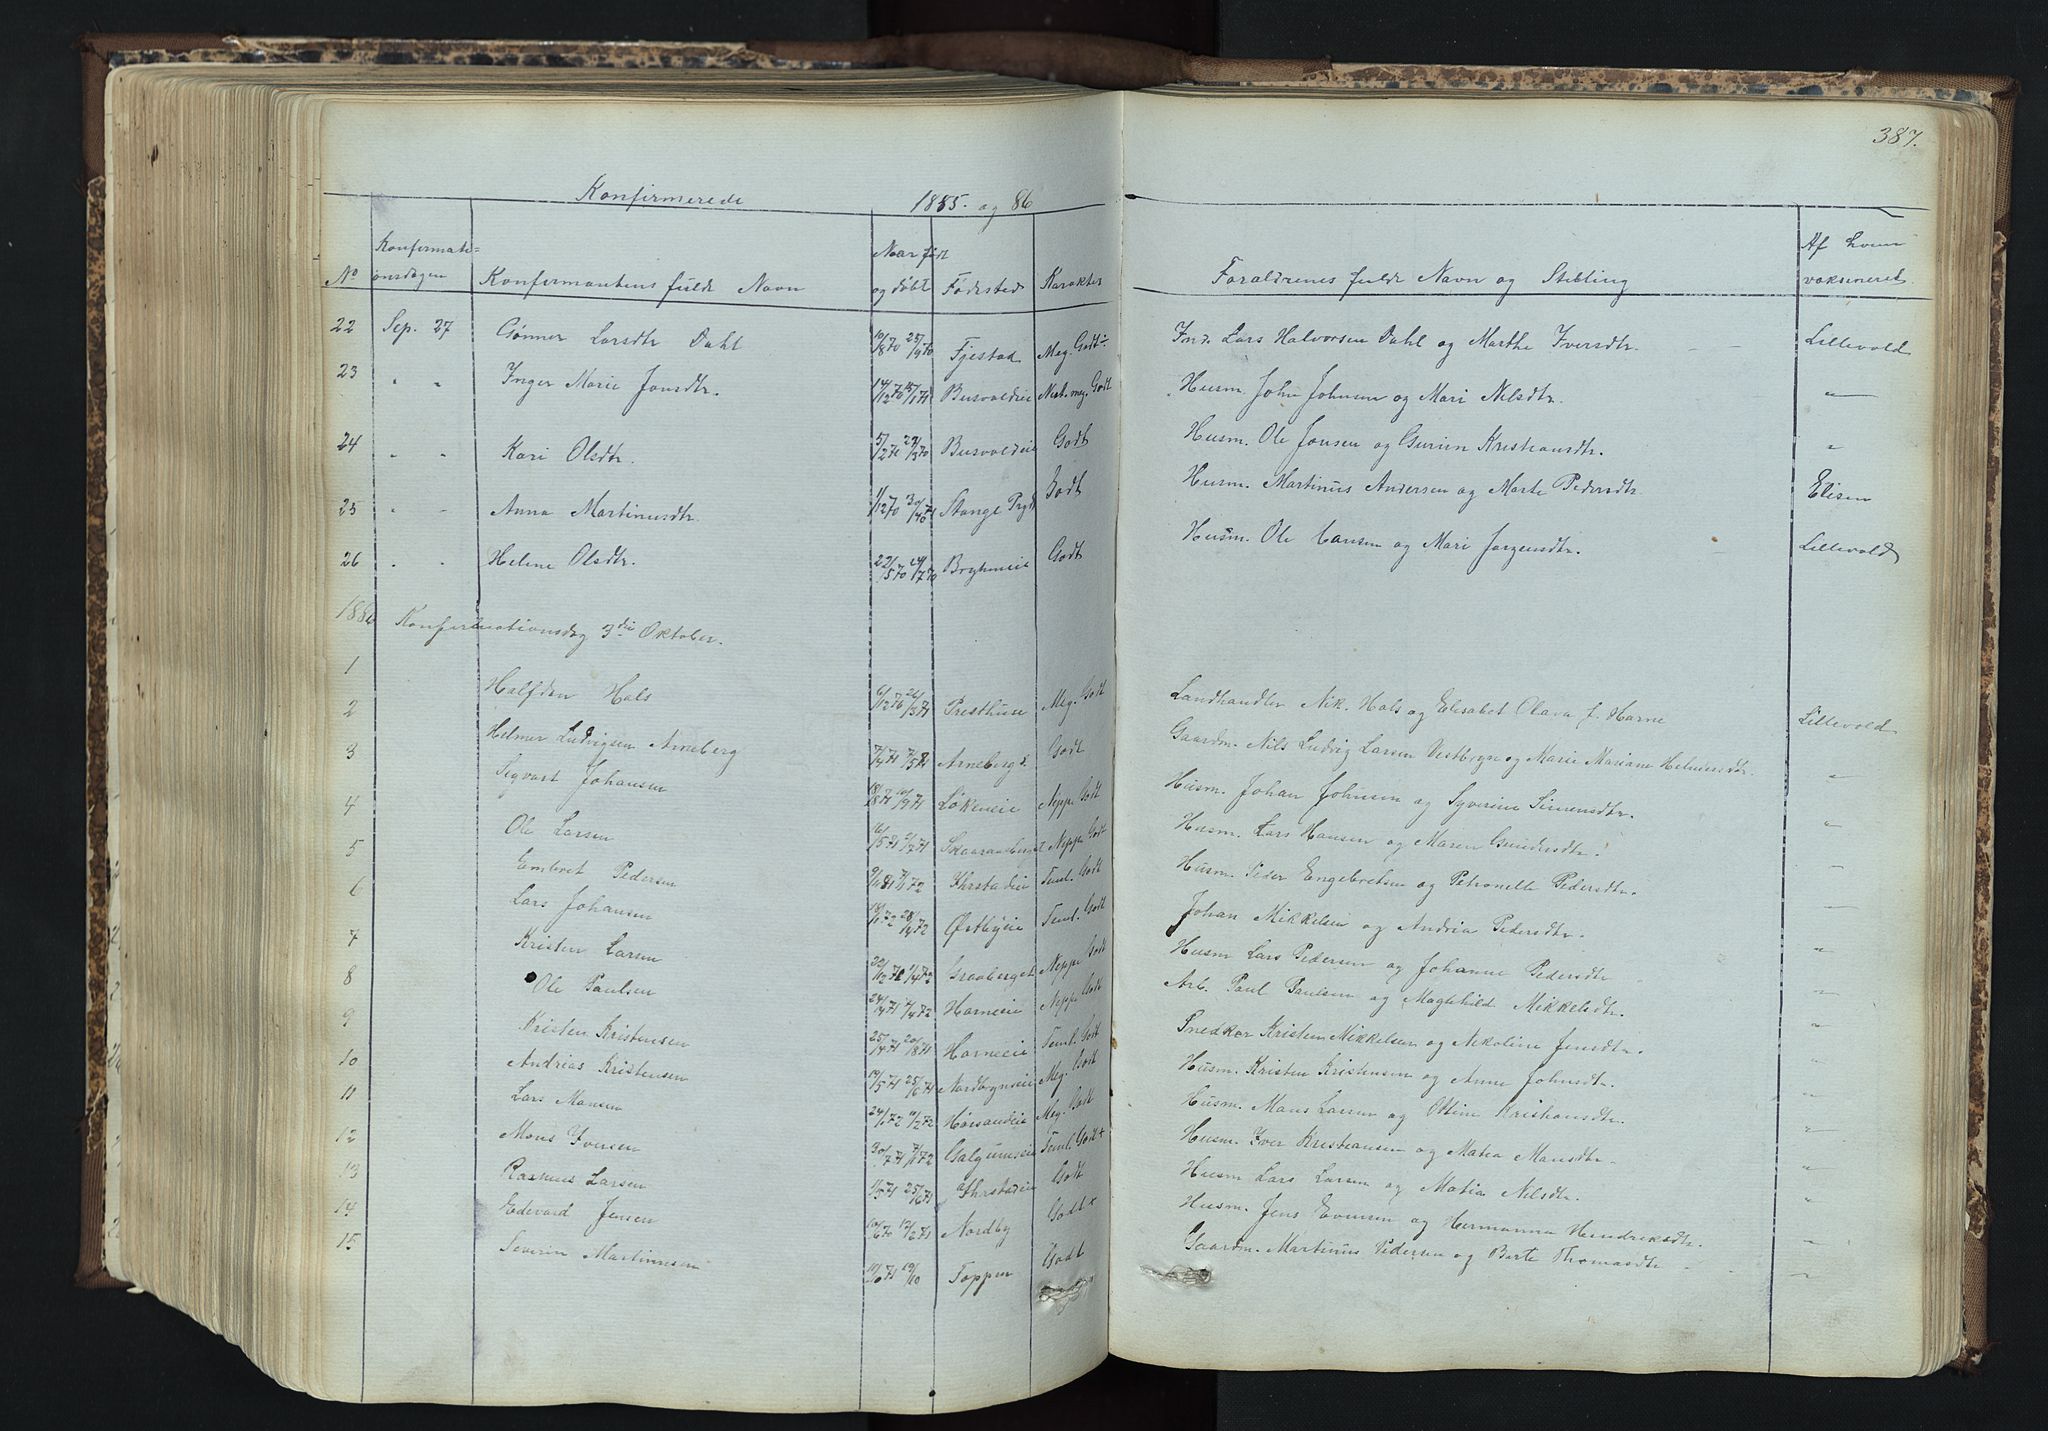 387.
Konfirmerede 1885. og 86
No Konfirmationsdagen Konfirmantens fulde Navn Naar født og døbt Fødested Karakter Foraldrenes fulde Navn og Stilling Af hvem vaksineret
22 Sep. 27 Gønner Larsdtr Dahl 10/8 70 25/9 70 Fjestad Meg. Godt ÷ Ind. Lars Halvorsen Dahl og Marthe Iversdtr. Lillevold
23 " " Inger Marie Jonsdtr. 14/12 70 15/1 71 Busvoldeie Nest. meg. Godt Husm. John Johnsen og Mari Nilsdtr. "
24 " " Kari Olsdtr. Busvoldeie Godt Husm. Ole Jonsen og Kristiansdtr. "
25 " " Anna Martinusdtr. Stange Prgd Godt Husm. Martinus Andersen og Marte Pedersdtr. Elisen
26 " " Helene Olsdtr. 22/5 70 24/7 70 Godt Husm. Ole Hansen og Mari Jørgensdtr. Lillevold
1886 Konfirmationsdag 3die Oktober.
1 Halfdan Hals Presthuse Meg. Godt Landhandler Nik. Hals og Elisabet Olava f. Horne Lillevold
2 Helmer Ludvigsen Arneberg Arneberg Godt Gaardm. Nils Ludvig Larsen Vestbryn og Marie Mariane Helmersdtr. "
3 Sigvart Johansen Løkeneie Neppe Godt Husm. Johan Johnsen og Syverine Simensdtr. "
4 Ole Larsen Skaaraaberget Neppe Godt Husm. Lars Hansen og Maren Gundersdtr. "
5 Embret Pedersen Teml. Godt Husm. Peder Engebretsen og Petronelle Pedersdtr. "
6 Lars Johansen Østbyeie Teml. Godt Johan Mikkelsen og Andria Pedersdtr. "
7 Kristen Larsen Graaberget Neppe Godt Husm Lars Pedersen og Johanne Pedersdtr "
8 Ole Paulsen Horneeie Neppe Godt Arb. Paul Paulsen og Magthild Mikkelsdtr. "
9 Kristen Kristensen 25/4 71 20/8 71 Horneeie Teml. Godt Snedker Kristen Mikkelsen og Nikoline Jensdtr. "
10 Andrias Kristensen 19/5 71 25/6 71 Nordbryneie Meg. Godt Husm. Kristen Kristensen og Anne Johnsdtr. "
11 Lars Monsen Meg. Godt Husm. Mons Larsen og Ottine Kristiansdtr. "
12 Mons Iversen Teml. Godt + Husm. Iver Kristiansen og Matea Monsdtr. "
13 Rasmus Larsen Godt Husm Lars Larsen og Matia Nilsdtr. "
14 Edevard Jensen Nordby Godt + Husm. Jens Evensen og Hermanna Hendriksdtr. "
15 Severin Martinusen Toppen Godt Gaardm. Martinus Pedersen og Berte Thomasdtr "